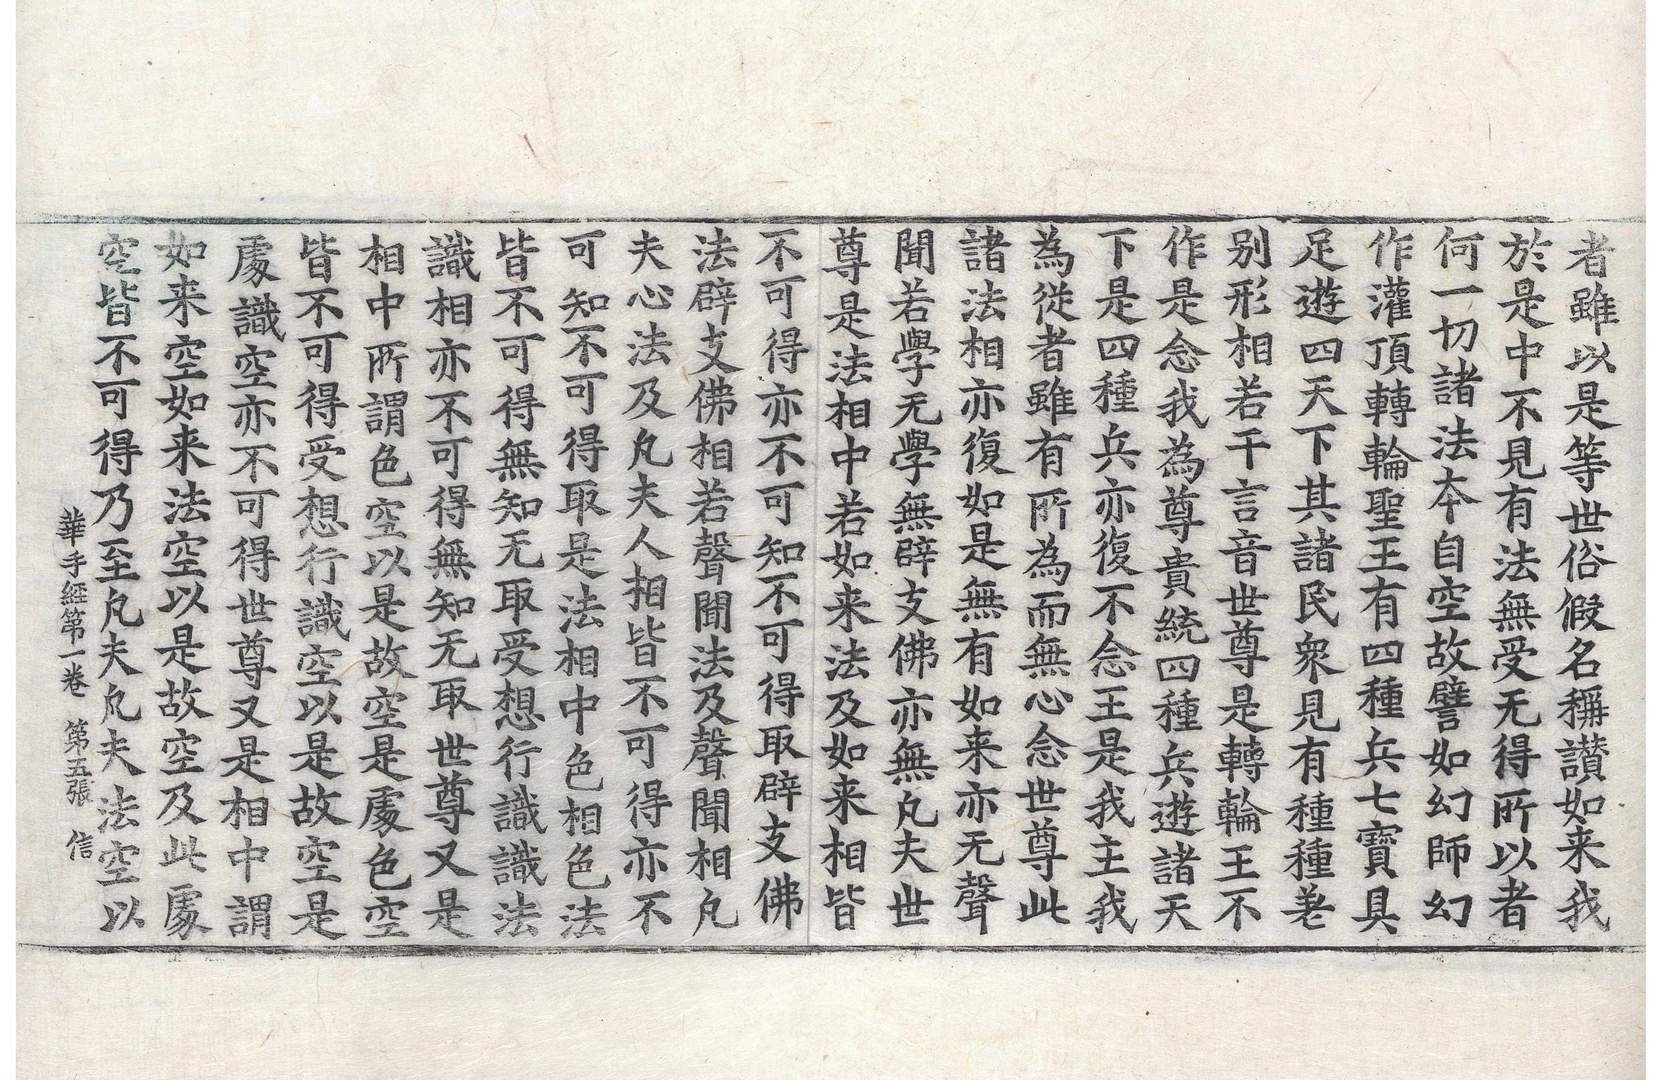 者雖以是等世俗假名稱讃如来我
於是中不見有法無受无得所以者
何一切諸法夲自空故譬如幻師幻
作灌頂轉輪聖王有四種兵七寳具
足遊四天下其諸民衆見有種種差
别形相若干言音世尊是轉輪王不
作是念我為尊貴統四種兵遊諸天
下是四種兵亦復不念王是我主我
為從者雖有所為而無心念世尊此
諸法相亦復如是無有如来亦无聲
聞若學无學無辟支佛亦無凢夫世
尊是法相中若如来法及如来相皆
不可得亦不可知不可得取辟支佛
法辟支佛相若聲聞法及聲聞相凢
夫心法及凢夫人相皆不可得亦不
可知不可得取是法相中色相色法
皆不可得無知无取受想行識識法
識相亦不可得無知无取世尊又是
相中所謂色空以是故空是處色空
皆不可得受想行識空以是故空是
處識空亦不可得世尊又是相中謂
如来空如来法空以是故空及此處
空皆不可得乃至凢夫凢夫法空以
華手經第一卷 第五張 信